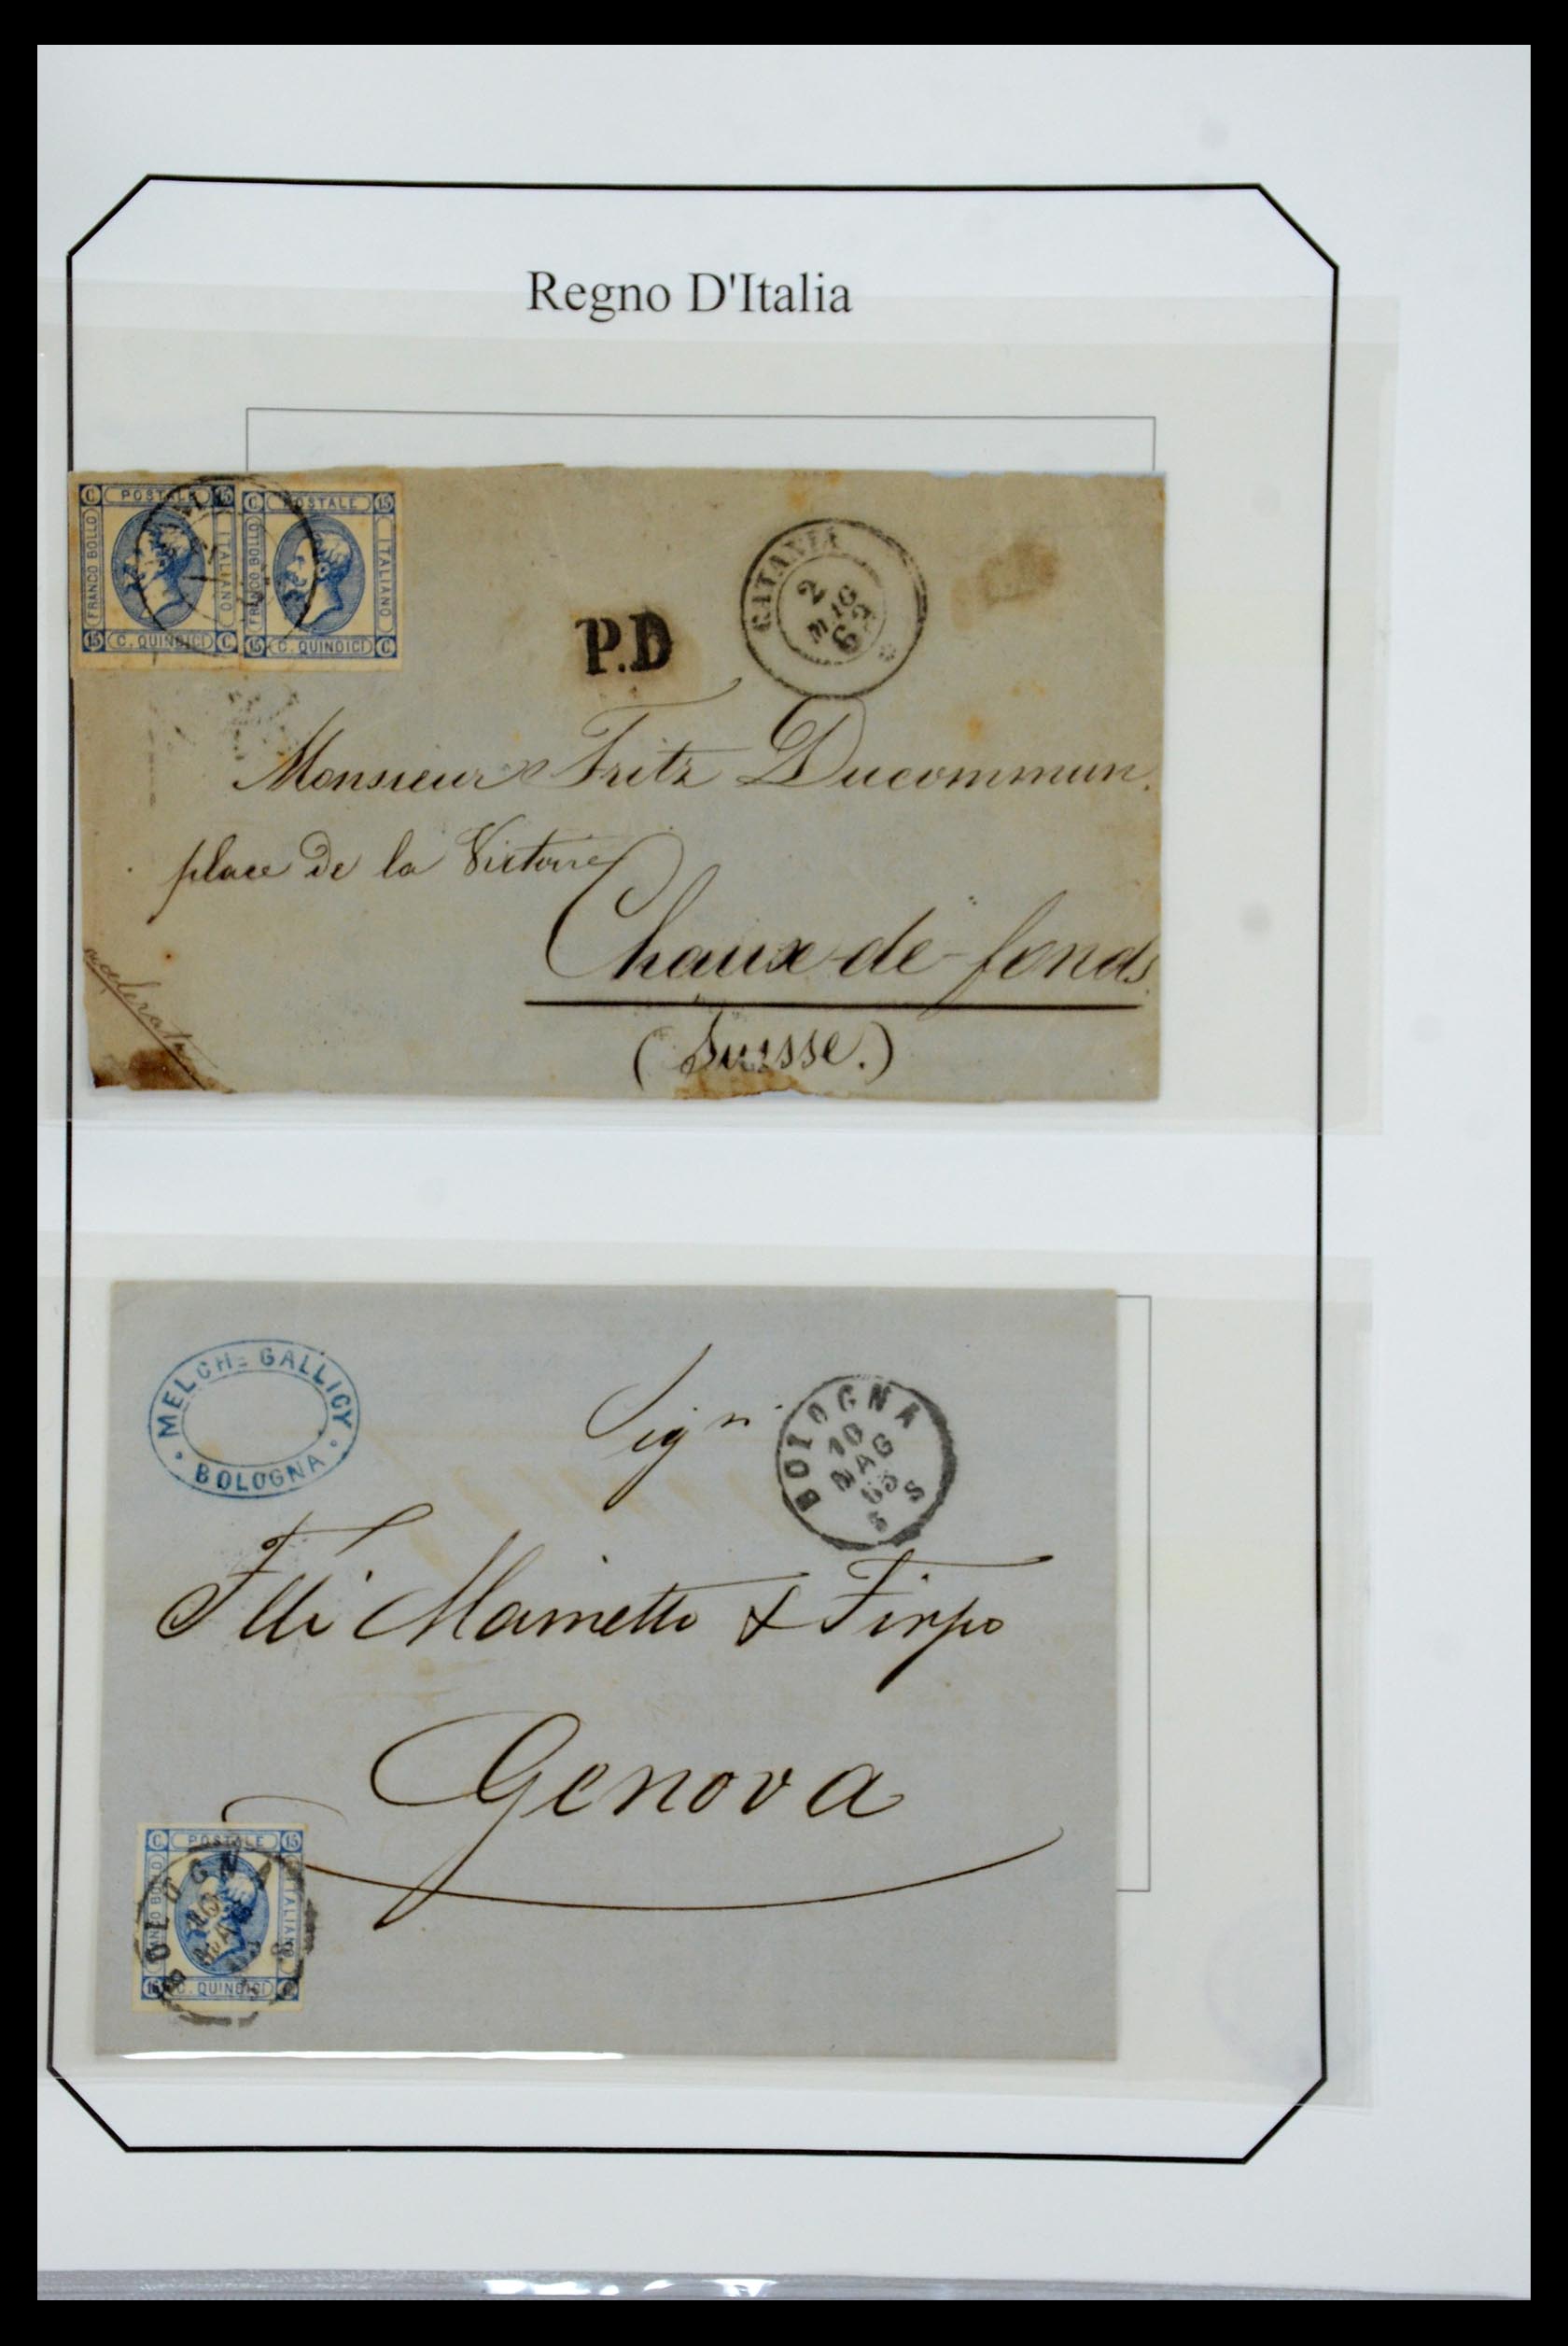 Regno D'Italia
C POSTALE 15
FRANCO BOLLO
ITALIANO
15 C. QUINDICI C
C POSTALE 15
FRANCO BOLLO
ITALIANO
15 C. QUINDICI C
P.D
CATANIA
2
MAG
63
Monsieur Fritz Ducommun.
place De la Victoire
Chaux-de-fonds.
(Suisse.)
MELCH= GALLICY
BOLOGNA
Sign
BOLOGNA
10
MAG
63
5 S
Flli Mainetto & Firpo
Genova
C POSTALE 15
FRANCO BOLLO
ITALIANO
15 C. QUINDICI C
BOLOGNA
10
MAG